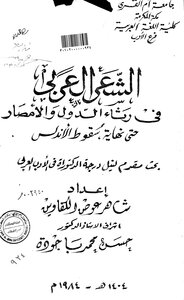 جامعة أم القرى
مكة المكرمة
كلية اللغة العربية
فرع الأدب
الشعر العربي
في رثاء الدول والأمصار
حتى نهاية سقوط الأندلس
بحث مقدم لنيل درجة الدكتوراة في الأدب العربي
إعداد
شاهر عوض الكفاوين
إشراف الأستاذ الدكتور
حسن محمد باجودة
١٤٠٤هـ - ١٩٨٤م